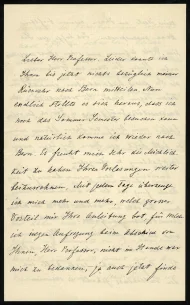 Lieber Herr Professor. Leider konnte ich
Ihnen bis jetzt nichts bezüglich meiner
Rückkehr nach Bern mitteilen. Nun
endlich stellte es sich heraus, dass ich
noch das Sommer Semester besuchen kann
und natürlich komme ich wieder nach
Bern. Es freut mich sehr die Möglich-
keit zu haben Ihren Vorlesungen weiter
beizuwohnen. Mit jedem Tage überzeuge
ich mich mehr und mehr, welch grosser
Vorteil mir Ihre Anleitung bot. Für mich
ich wegen Aufregung beim Abschied von
Ihnen, Herr Professor, nicht im Stande war
mich zu bedanken; ja auch jetzt finde